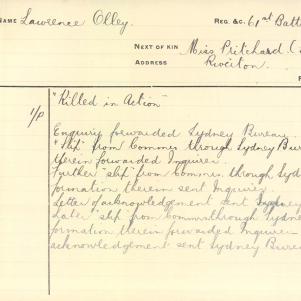 NAME Lawrence Olley. REG. &C. 61st Batt
NEXT OF KIN Miss Pritchard
ADDRESS Riverton.
"Killed in Action"
1/p
Enquiry forwarded Sydney Bureau.
"slip" from Commrs through Sydney Bur
therein forwarded Inquirer.
Further "slip" from Commrs. through Syd
formation therein sent Inquirer.
Letter of acknowledgement sent Sydney
Later "slip" from Commrs through Sydne
formation therein forwarded Inquirer
acknowledgement sent Sydney Burea